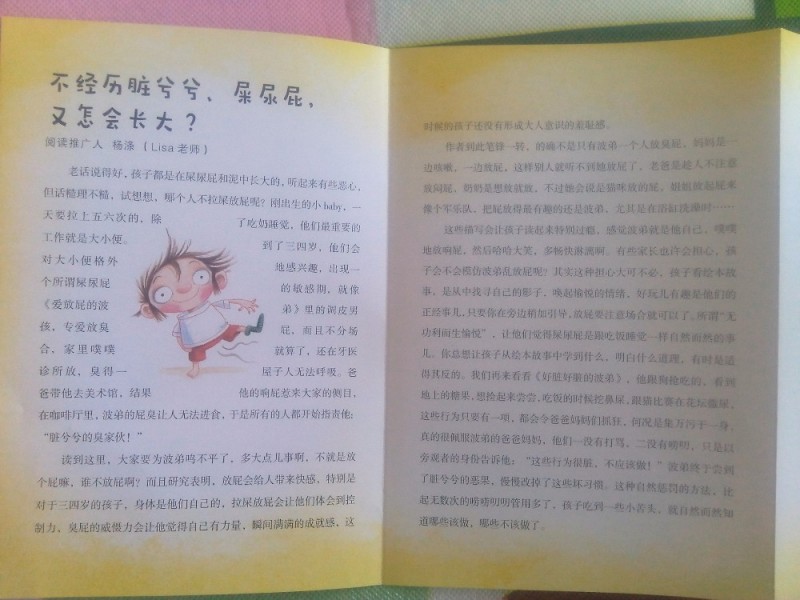 不经历脏兮兮、屎尿屁，
又怎会长大？
阅读推广人 杨涤 （Lisa 老师）
老话说得好，孩子都是在屎尿屁和泥中长大的，听起来有些恶心，
但话糙理不糙，试想想，哪个人不拉屎放屁呢？刚出生的小 baby，一
天要拉上五六次的，除了吃奶睡觉，他们最重要的
工作就是大小便。到了三四岁，他们会
对大小便格外地感兴趣，出现一
个所谓屎尿屁的敏感期，就像
《爱放屁的波弟》里的调皮男
孩，专爱放臭屁，而且不分场
合，家里噗噗就算了，还在牙医
诊所放，臭得一屋子人无法呼吸。爸
爸带他去美术馆，结果他的响屁惹来大家的侧目，
在咖啡厅里，波弟的屁臭让人无法进食，于是所有的人都开始指责他：
“脏兮兮的臭家伙！”
读到这里，大家要为波弟鸣不平了，多大点儿事啊，不就是放
个屁嘛，谁不放屁啊？而且研究表明，放屁会给人带来快感，特别是
对于三四岁的孩子，身体是他们自己的，拉屎放屁会让他们体会到控
制力，臭屁的威慑力会让他觉得自己有力量，瞬间满满的成就感，这
时候的孩子还没有形成大人意识的羞耻感。
作者到此笔锋一转，的确不是只有波弟一个人放臭屁，妈妈是一
边咳嗽，一边放屁，这样别人就听不到她放屁了，老爸是趁人不注意
放闷屁，奶奶是想放就放，不过她会说是猫咪放的屁，姐她放起屁来
像个军乐队，把屁放得最有趣的还是波弟，尤其是在浴缸洗澡时……
这些描写会让孩子读起来特别过瘾，感觉波弟就是他自己，噗噗
地放响屁，然后哈哈大笑，多畅快淋漓啊。有些家长也许会担心，孩
子会不会模仿波弟乱放屁呢？其实这种担心大可不必，孩子看绘本故
事，是从中找寻自己的影子，唤起愉悦的情绪，好玩儿有趣是他们的
正经事儿，只要你在旁边稍加引导，放屁要注意场合就可以了。所谓“无
功利而生愉悦”，让他们觉得屎尿屁是跟吃饭睡觉一样自然而然的事
儿。你总想让孩子从绘本故事中学到什么，明白什么道理，有时是适
得其反的。我们再来看看《好脏好脏的波弟》，他跟狗抢吃的，看到
地上的糖果，想捡起来尝尝，吃饭的时候挖鼻屎，跟猫比赛在花坛撒尿，
这些行为只要有一项，都会令爸爸妈妈们抓狂，何况是集万污于一身，
真的很佩服波弟的爸爸妈妈，他们一没有打骂，二没有唠叨，只是以
旁观者的身份告诉他：“这些行为很脏，不应该做！”波弟终于尝到
了脏兮兮的恶果，慢慢改掉了这些坏习惯。这种自然惩罚的方法，比
起无数次的唠唠叨叨管用多了，孩子吃到一些小苦头，就自然而然知
道哪些该做，哪些不该做了。